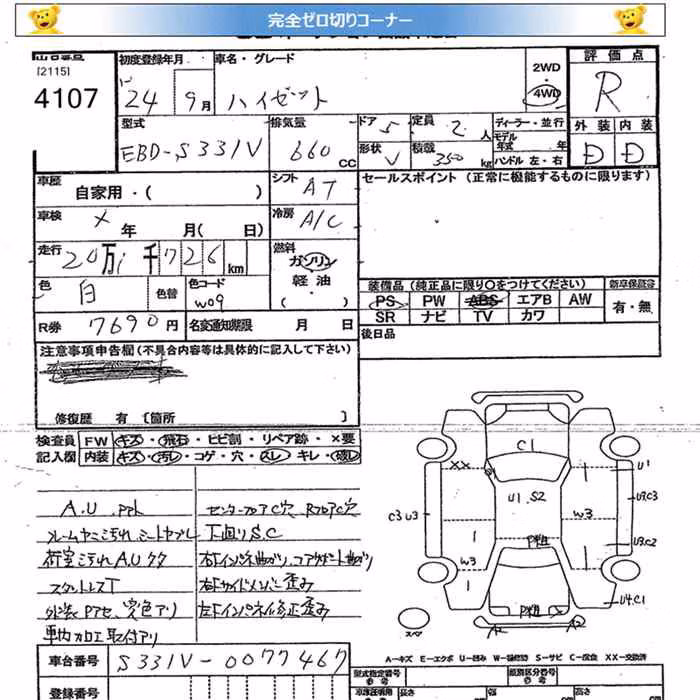 完全ゼロ切りコーナー
[2115]
4107
初度登録年月
24 9月
車名・グレード
ハイゼット
2WD
4WD
評価点
R
型式
EBD-S331V
排気量
660 CC
ドア 5
定員 2 人
形状 V
積載 350 kg
ディーラー・並行
モデル年式 年
ハンドル 左・右
外装 内装
D D
車歴
自家用・( )
シフト AT
セールスポイント (正常に機能するものに限ります)
車検 × 年 月(日)
冷房 A/C
走行 20万1千726km
燃料
ガソリン
軽油
・( )
色 白 色替
色コード W09
装備品 (純正品に限り○をつけてください)
新車保証書
PS PW ABS エアB AW
SR ナビ TV カワ
有・無
R券 7690円
名変通知期限 月 日
後日品
注意事項申告欄 (不具合内容等は具体的に記入して下さい)
修復歴 有 [箇所 ]
検査員記入欄
FW キズ・飛石・ヒビ割・リペア跡・×要
内装 キズ・汚レ・コゲ・穴・スレ・キレ・破レ
C1
XX
U1
U1, S2
U3.C3
C3 U3
W3
W3
U3.C2
U4.C1
スペア
A2
A2
A.U
フレームサビ汚れ
スタットレスT
車内加工取付アリ
センターフロアC穴 RフロアC穴
下廻りS.C
右Fサイドメンバー歪み
左Fインパネ修正歪み
A-キズ E-エクボ U-凹み W-補修跡 S-サビ C-腐食 XX-交換済
車台番号 S331V-0077467
登録番号
型式指定番号
類別区分番号